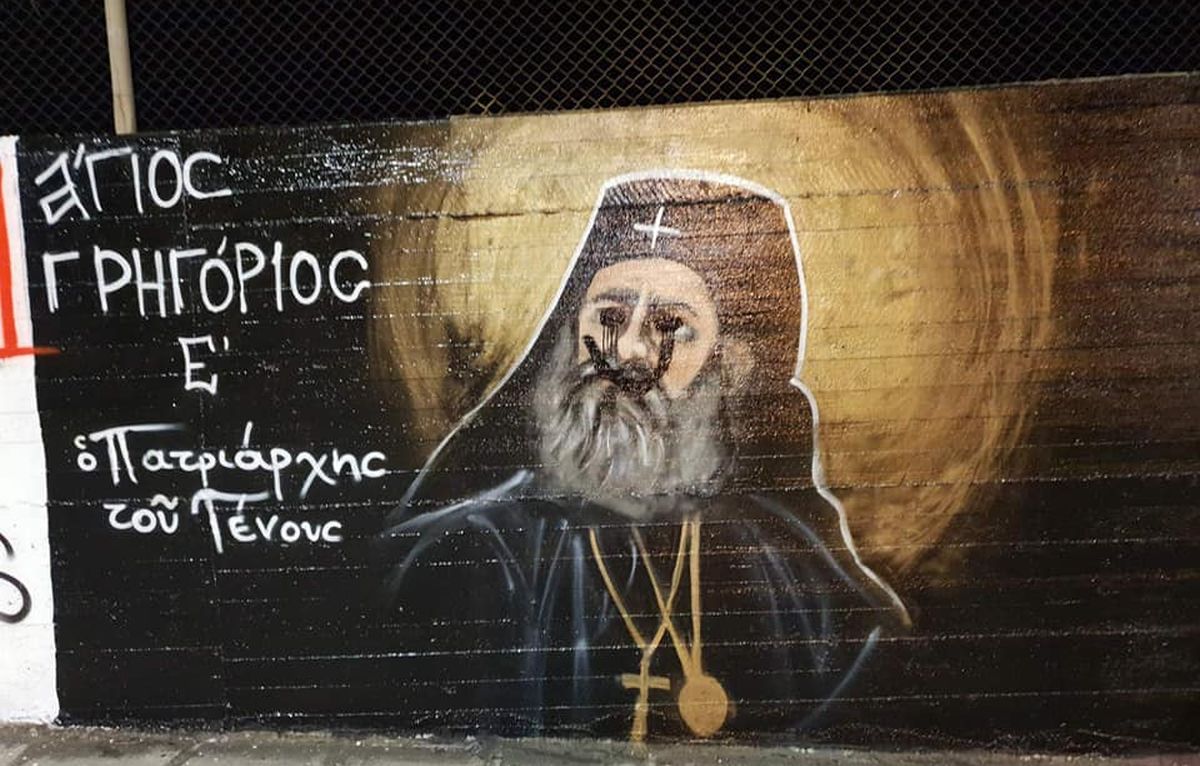 ἍΓΙΟΣ
ΓΡΗΓΌΡΙΟΣ
Ε'
ὁ Πατριάρχης
τοῦ Γένους